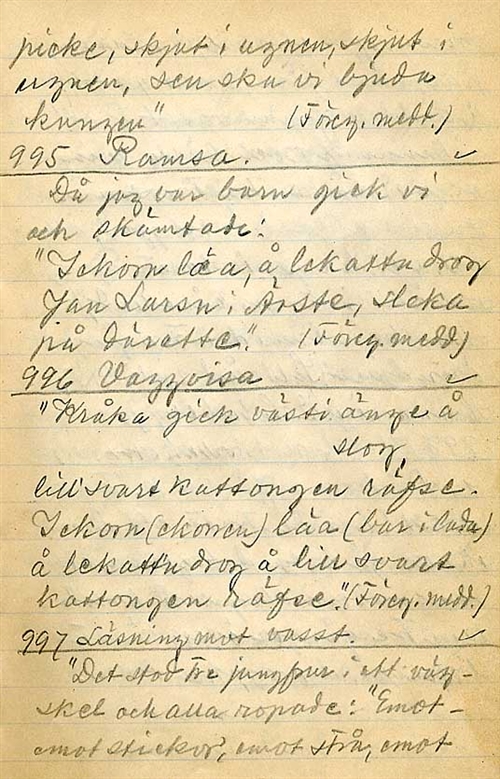 picke, skjut i ugnen, skjut i
ugnen, sen ska vi bjuda
kungen" (Föreg. medd.)
995 Ramsa.
Då jag var barn gick vi
och skämtade:
"Ickorn läa, å lekattn drog
Jan Larsn i Ärste, sleka
på därette." (Föreg. medd)
996 Vaggvisa
"Kråka gick västi änge å
slog,
lill svart kattongen räfse.
Ickorn (ekorren) läa (bar i lada)
å lekatt'n drog å lill svart
kattongen räfse." (Föreg. medd.)
997 Läsning mot vasst.
"Det stod tre jungfrur i ett väg-
skel och alla ropade: "Emot-
emot stickor, emot strå, emot